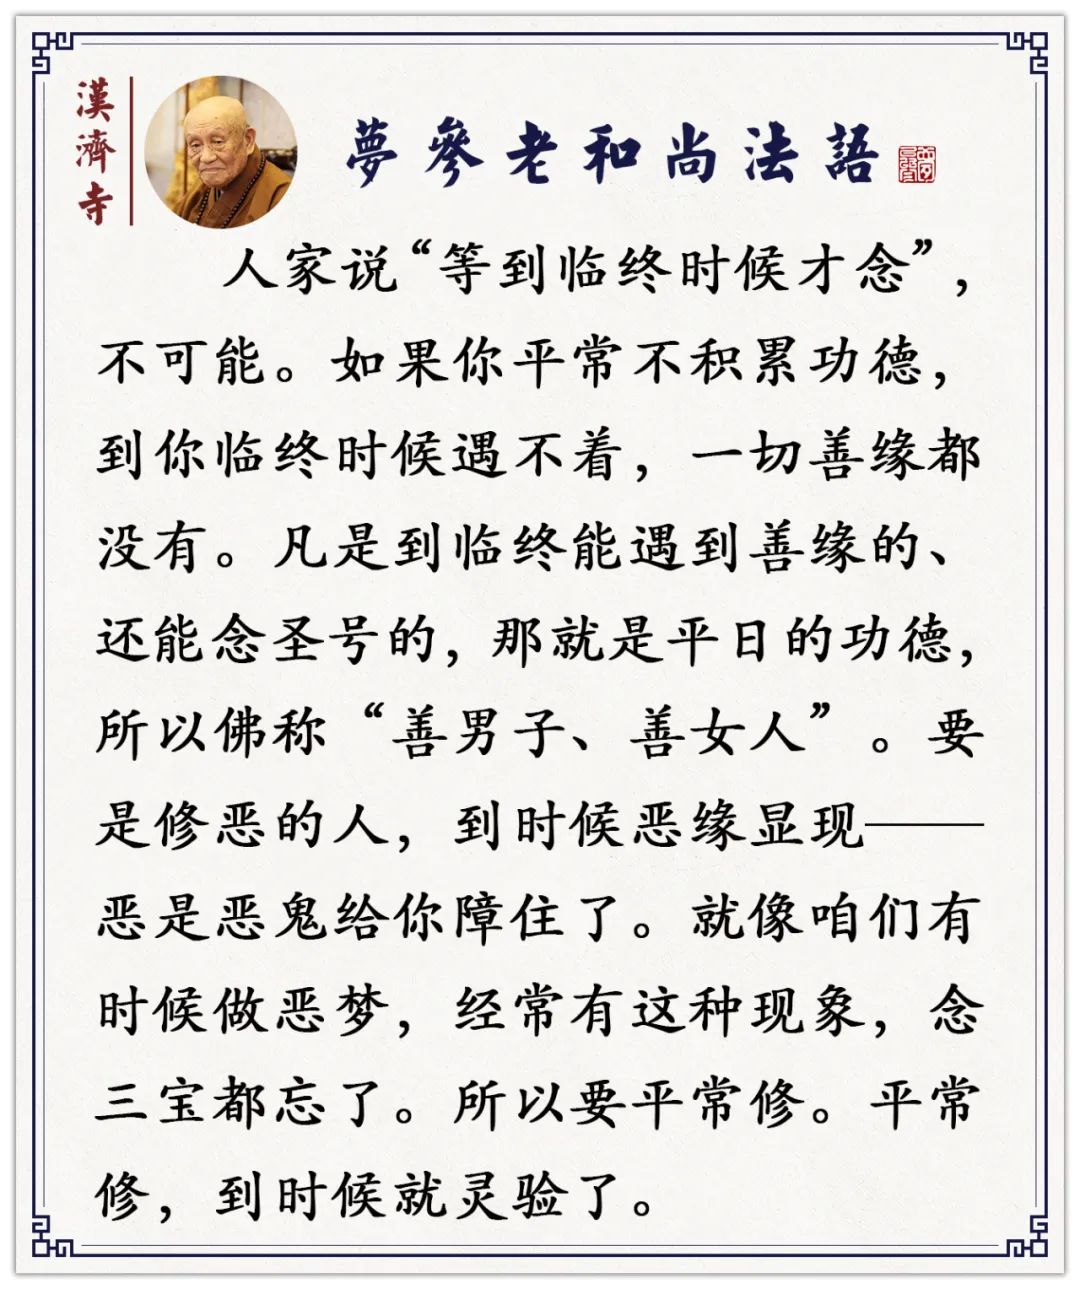 漢濟寺
夢參老和尚法語
人家说“等到临终时候才念”，
不可能。如果你平常不积累功德，
到你临终时候遇不着，一切善缘都
没有。凡是到临终能遇到善缘的、
还能念圣号的，那就是平日的功德，
所以佛称“善男子、善女人”。要
是修恶的人，到时候恶缘显现——
恶是恶鬼给你障住了。就像咱们有
时候做恶梦，经常有这种现象，念
三宝都忘了。所以要平常修。平常
修，到时候就灵验了。